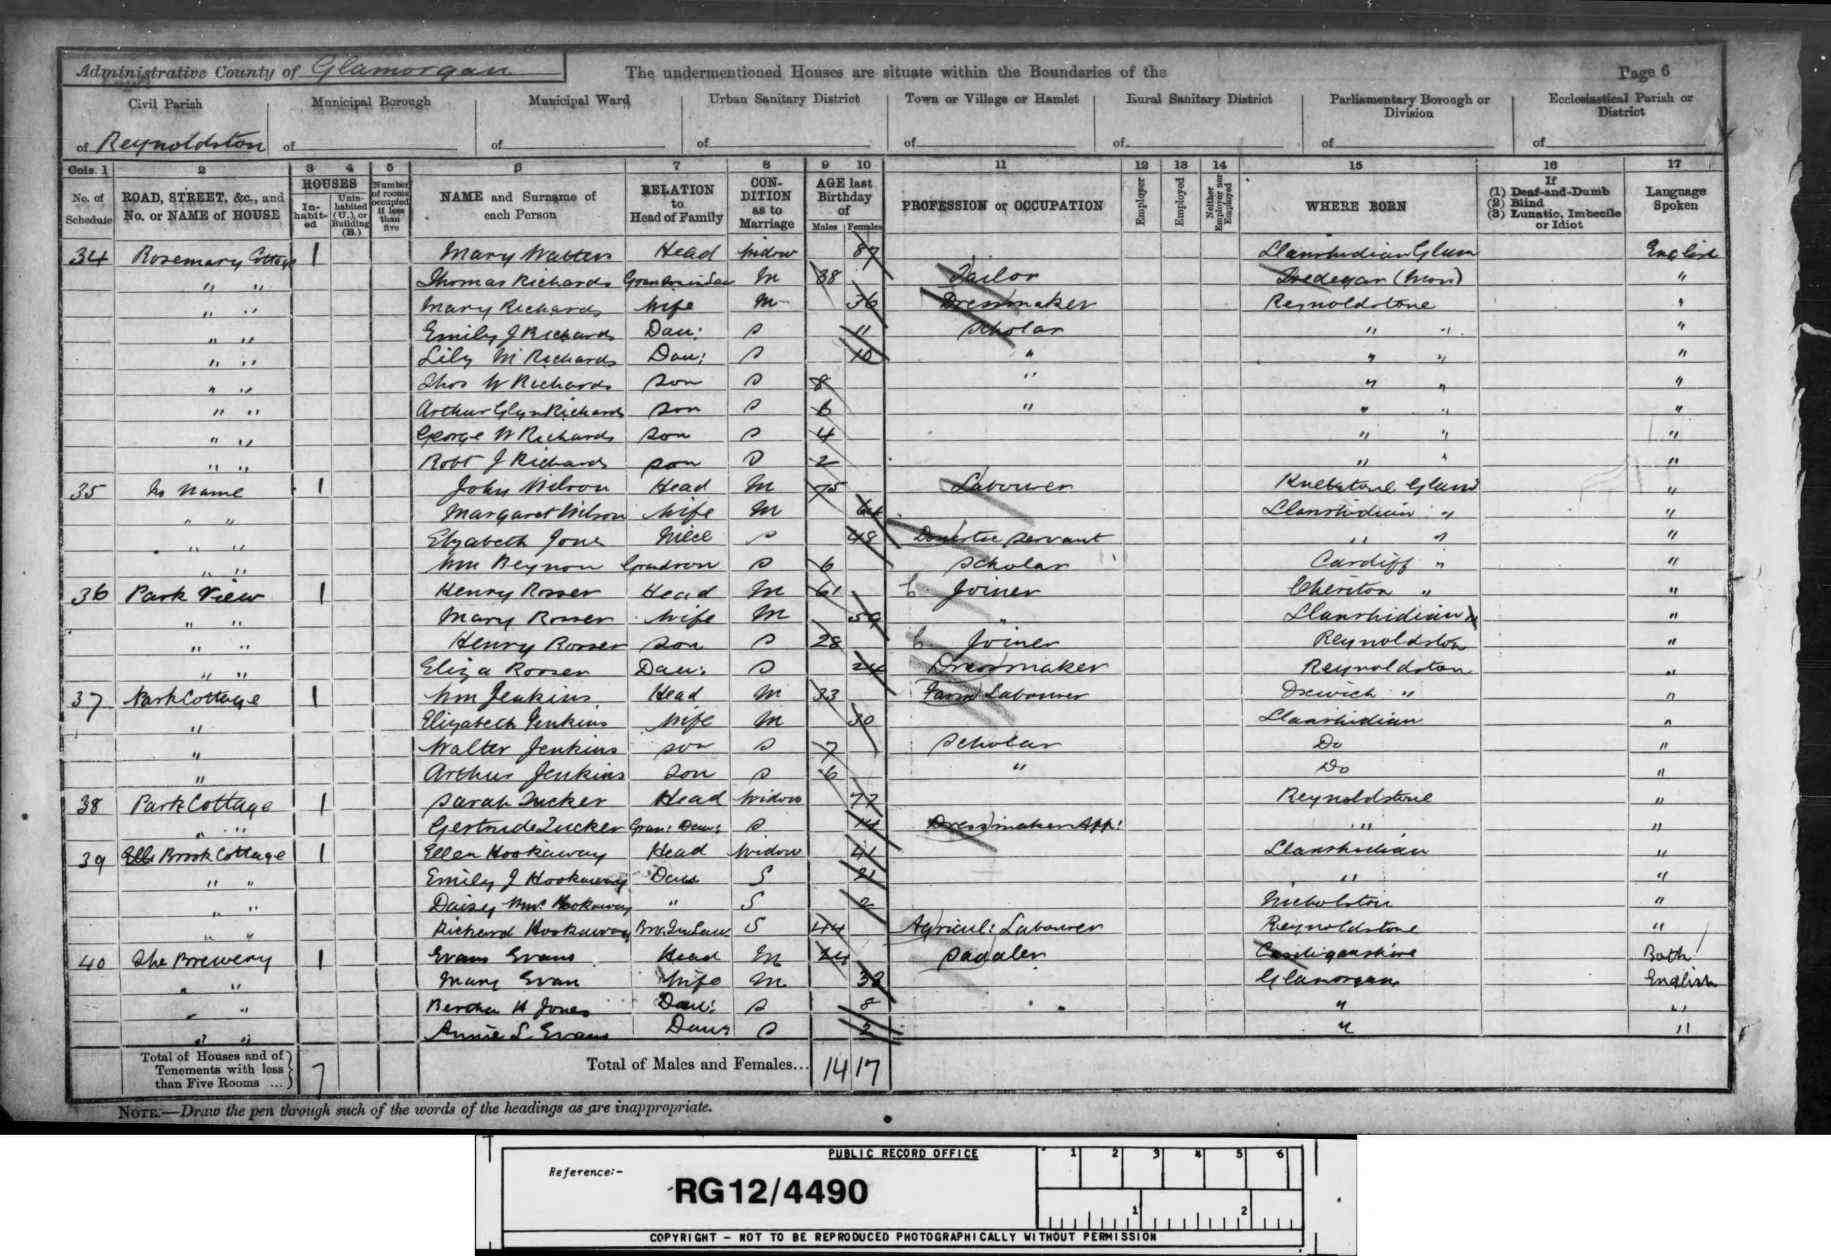 Administrative County of Glamorgan The undermentioned Houses are situate within the Boundaries of the Page 6
Civil Parish Municipal Borough Municipal Ward Urban Sanitary District Town or Village or Hamlet Rural Sanitary District Parliamentary Borough or Division Ecclesiastical Parish or District
of Reynoldston of of of of of of of
Cols. 1 2 3 4 5 6 7 8 9 10 11 12 13 14 15 16 17
No. of Schedule ROAD, STREET, &c., and No. or NAME of HOUSE HOUSES In-habit-ed Unin-habited (U.), or Building (B.) Number of rooms occupied if less than five NAME and Surname of each Person RELATION to Head of Family CON-DITION as to Marriage AGE last Birthday of Males Females PROFESSION or OCCUPATION Employer Employed Neither Employer nor Employed WHERE BORN If (1) Deaf-and-Dumb (2) Blind (3) Lunatic, Imbecile or Idiot Language Spoken
34 Rosemary Cottage 1 Mary Watters Head Widow 87 Llanrhidian Glam English
" " Thomas Richards Grandson in Law M 38 Tailor Tredegar (Mon) "
" " Mary Richards Wife M 36 Dressmaker Reynoldstone "
" " Emily J Richards Dau: S 11 Scholar " " "
" " Lily M Richards Dau: S 10 " " " "
" " Thos W Richards Son S 8 " " " "
" " Arthur Glyn Richards Son S 6 " " " "
" " George W Richards Son S 4 " " "
" " Robt J Richards Son S 2 " " "
35 No Name 1 John Wilson Head M 75 Labourer Knelstone Glam "
" " Margaret Wilson Wife M 64 Llanrhidian " "
" " Elizabeth Jones Niece S 48 Domestic Servant " " "
" " Wm Beynon Grandson S 6 Scholar Cardiff " "
36 Park View 1 Henry Rosser Head M 61 Joiner Cheriton " "
" " Mary Rosser Wife M 59 " Llanrhidian "
" " Henry Rosser Son S 28 Joiner Reynoldston "
" " Eliza Rosser Dau: S 24 Dressmaker Reynoldston "
37 Park Cottage 1 Wm Jenkins Head M 33 Farm Labourer Oxwich " "
" Elizabeth Jenkins Wife M 30 Llanrhidian "
" Walter Jenkins Son S 7 Scholar Do "
" Arthur Jenkins Son S 6 " Do "
38 Park Cottage 1 Sarah Tucker Head Widow 77 Reynoldstone "
" " Gertrude Tucker Gran: Dau: S 14 Dressmaker App: " " "
39 Brook Cottage 1 Ellen Hookaway Head Widow 41 Llanrhidian "
" " Emily J Hookaway Daur S 21 " "
" " Daisy Hookaway " S 2 Nicholston "
" " Richard Hookaway Bro. In Law S 44 Agricul: Labourer Reynoldstone "
40 The Brewery 1 Evans Evans Head M 24 Saddler Cardiganshire Both
" " Mary Evan Wife M 32 Glamorgan English
" " Bertha H Jones Dau: S 8 " "
" " Annie S Evans Daur S 2 " "
Total of Houses and of Tenements with less than Five Rooms ... 7 Total of Males and Females... 14 17
NOTE.—Draw the pen through such of the words of the headings as are inappropriate.
PUBLIC RECORD OFFICE 1 2 3 4 5 6
Reference:-
RG12/4490
1 2
COPYRIGHT - NOT TO BE REPRODUCED PHOTOGRAPHICALLY WITHOUT PERMISSION